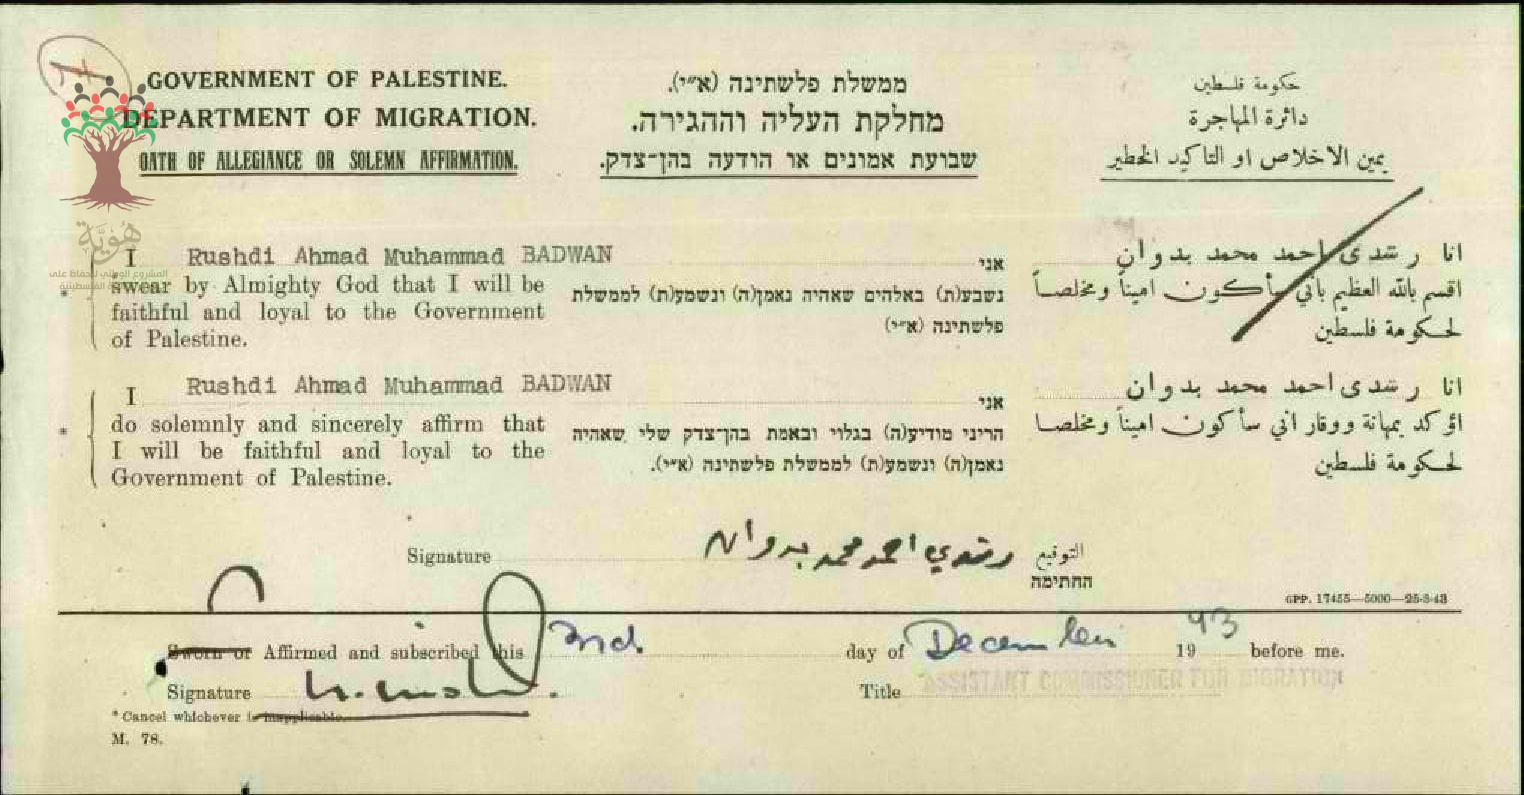 GOVERNMENT OF PALESTINE.
DEPARTMENT OF MIGRATION.
OATH OF ALLEGIANCE OR SOLEMN AFFIRMATION.
ממשלת פלשתינה (א״י).
מחלקת העליה וההגירה.
שבועת אמונים או הודעה בהן־צדק.
حكومة فلسطين
دائرة المهاجرة
يمين الاخلاص او التاكيد الخطير
هُوِيَّة
المشروع الوطني للحفاظ على
I Rushdi Ahmad Muhammad BADWAN
* swear by Almighty God that I will be
faithful and loyal to the Government
of Palestine.
אני
נשבע(ת) באלהים שאהיה נאמן(ה) ונשמע(ת) לממשלת
פלשתינה (א״י)
انا رشدى احمد محمد بدوان
اقسم بالله العظيم باني سأكون اميناً ومخلصاً
لحكومة فلسطين
I Rushdi Ahmad Muhammad BADWAN
* do solemnly and sincerely affirm that
I will be faithful and loyal to the
Government of Palestine.
אני
הריני מודיע(ה) בגלוי ובאמת בהן־צדק שלי שאהיה
נאמן(ה) ונשמע(ת) לממשלת פלשתינה (א״י).
انا رشدى احمد محمد بدوان
اؤكد بمهانة ووقار اني سأكون اميناً ومخلصا
لحكومة فلسطين
Signature رشدي احمد محمد بدوان التوقيع
החתימה
GPP. 17455—5000—25-8-43
Sworn or Affirmed and subscribed this 3rd. day of December 1943 before me.
Signature Title ASSISTANT COMMISSIONER FOR MIGRATION
* Cancel whichever is inapplicable.
M. 78.